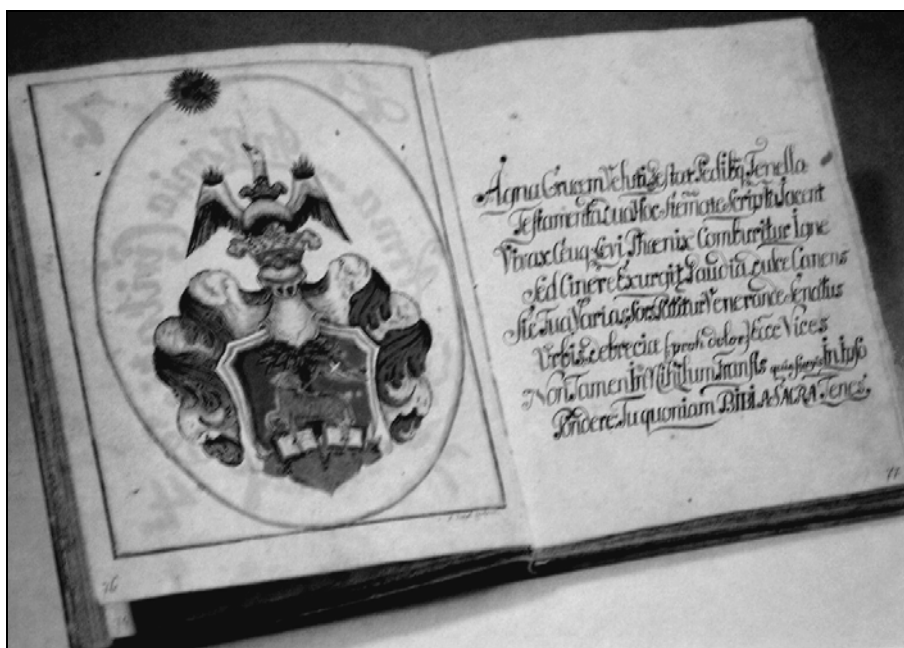 Agna Crucem Veluti Gestat Pedibq Tenella
Testamenta tua Hoc Stem̄ate Scripta Jacent
Vivax Ceuq Levi Phœnix Comburitur Igne
Sed Cinere Exurgit Gaudia Dulce Canens
Sic Tua Varias Venerance Senatus
Urbis Debrecia (proh dolor) Ecce Vices
Non Tamen In Nihilum Transis quia In
Pondere Tu quoniam BIBLA SACRA Tenes.
76
77